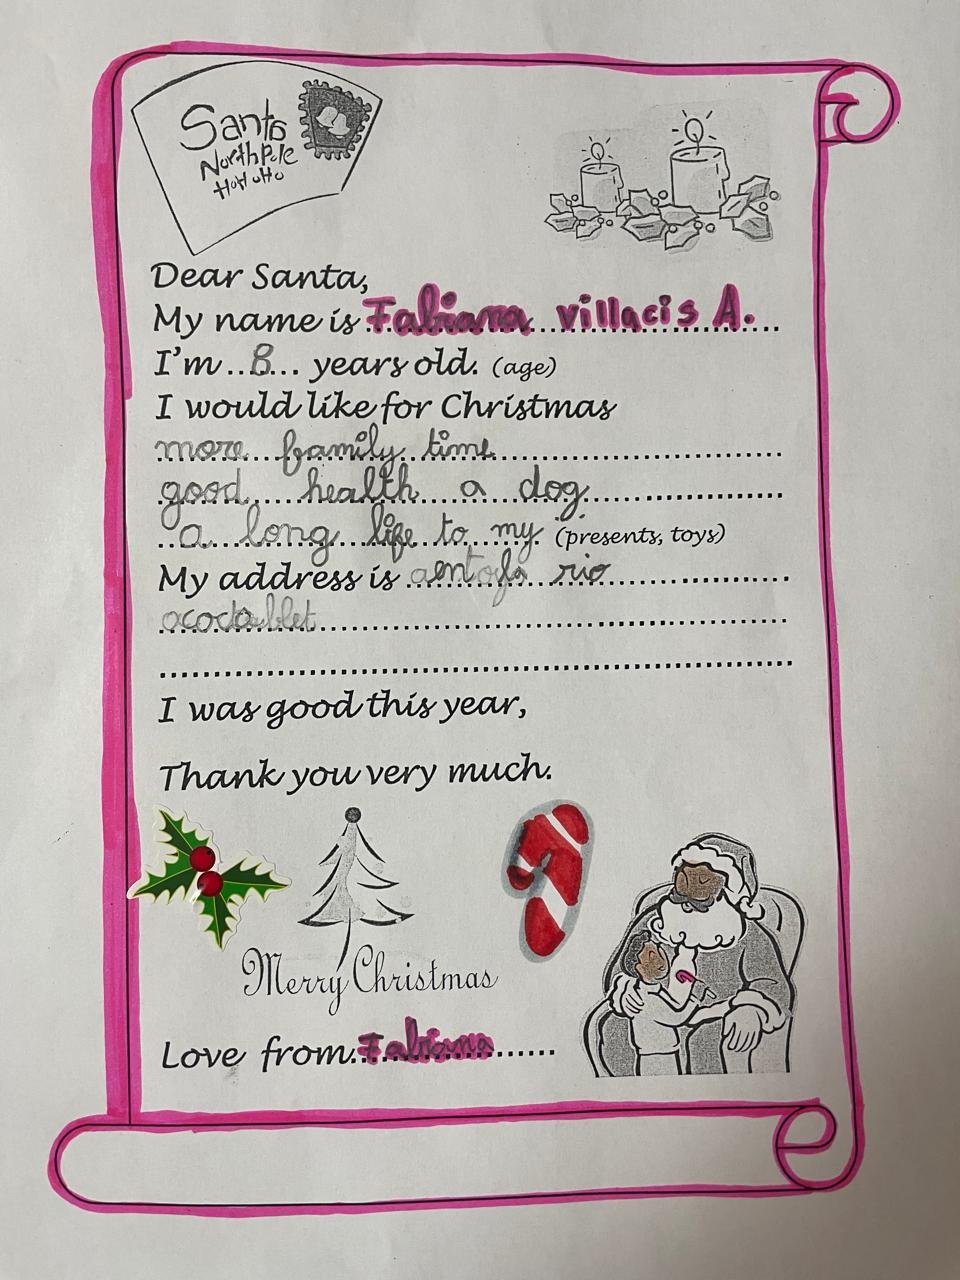 Santa
North Pole
HoHoHo
Dear Santa,
My name is Fabiana villacis A.
I'm 8 years old. (age)
I would like for Christmas
more family time
good health a dog
a long life to my (presents, toys)
My address is rio
I was good this year,
Thank you very much.
Merry Christmas
Love from Fabiana